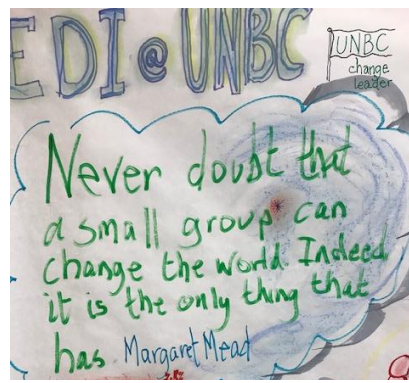 EDI @ UNBC
UNBC
change
leader
Never doubt that
a small group can
change the world. Indeed
it is the only thing that
has Margaret Mead